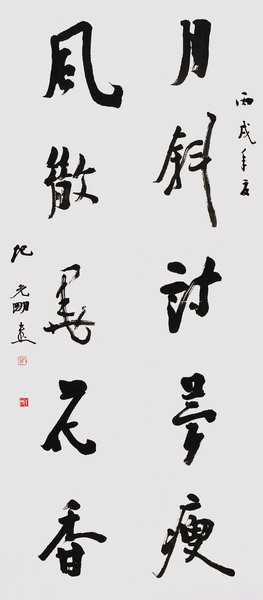 丙戌年夏
月斜詩夢瘦
風散墨花香
纪光明